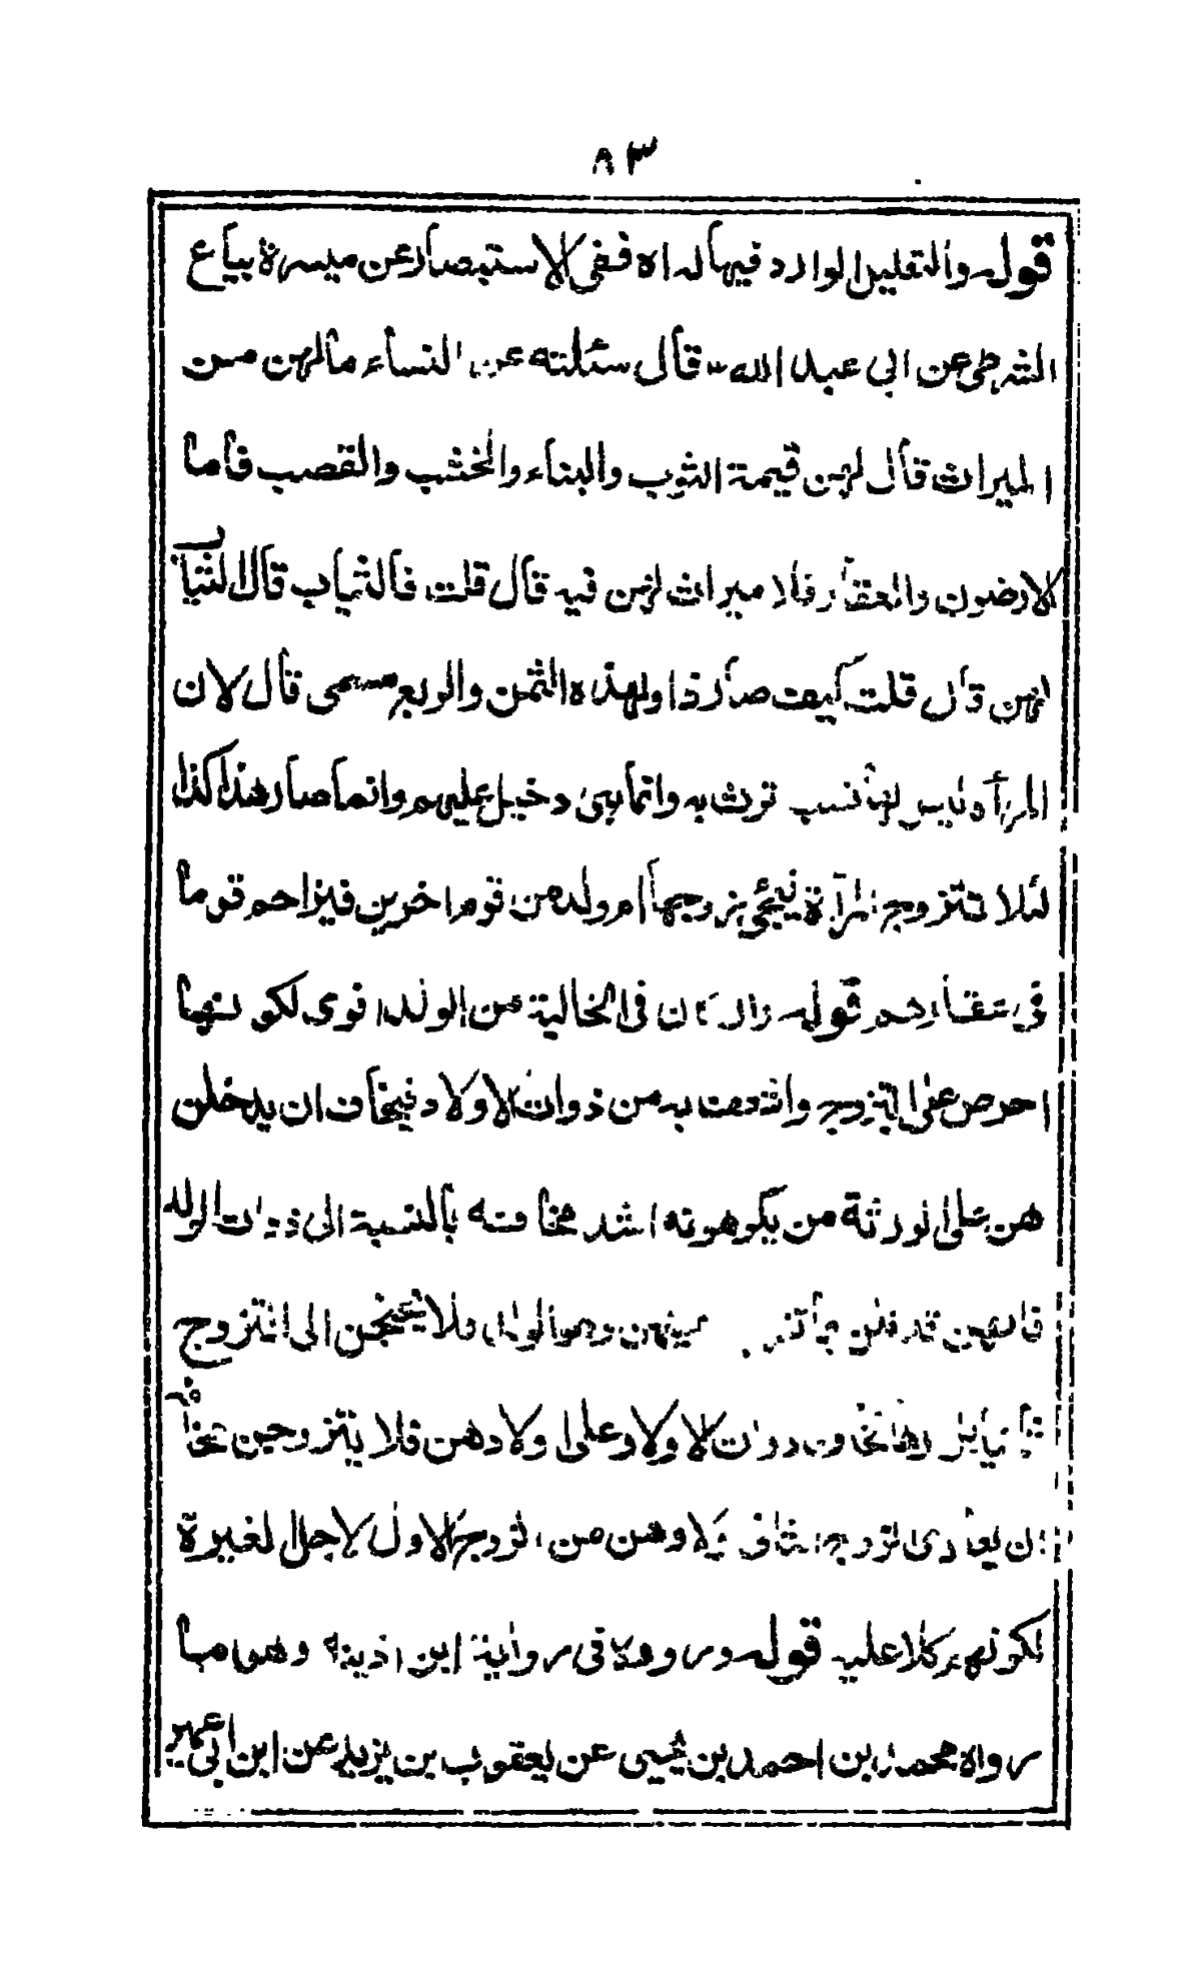 ٨٣
قوله والتعليل الوارد فيها له اه ففي الاستبصار عن ميسرة بياع
الشرطي عن ابي عبد الله قال سئلته عن النساء مالهن من
الميراث قال لهن قيمة الثوب والبناء والخشب والقصب فاما
الارضون والعقار فلا ميراث لهن فيه قال قلت فالثياب قال الثياب
لهن قال قلت كيف صار ذا ولهذه الثمن والربع مسمى قال لان
المرأة ليس لها نسب ترث به وانما هي دخيل عليهم وانما صار هذا كذا
لئلا تتزوج المرأة فيجئ زوجها ام ولد من قوم اخرين فيزاحم قوما
في عقارهم قوله وان كان في الخالية من الولد اقوى لكونها
احرص على التزوج به من ذوات الاولاد فيخاف ان يدخلن
هن على الورثة من يكرهونه اشد مخافته بالنسبة الى ذوات الولد
فانهن قد فلا يحتجن الى التزوج
ثانيا ذوات الاولاد على اولادهن فلا يتزوجن مخافة
ان يعادى الزوج الثاني اولادهن من الزوج الاول لاجل الغيرة
لكونهم كلا عليه قوله وروده في رواية ابن اذينة وهو ما
رواه محمد بن احمد بن يحيى عن يعقوب بن يزيد عن ابن ابي عمير